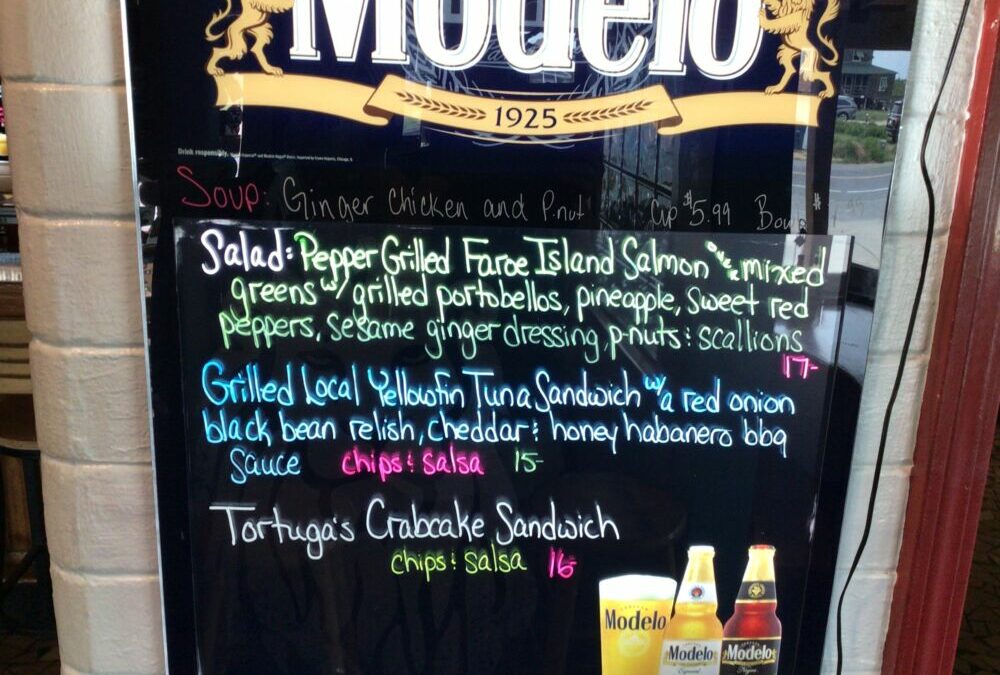 Modelo
1925
Drink responsibly.
Soup: Ginger Chicken and P.nut Cup $5.99 Bowl $
Salad: Pepper Grilled Faroe Island Salmon w/ mixed
greens w/ grilled portobellos, pineapple, sweet red
peppers, sesame ginger dressing, p-nuts & scallions
17-
Grilled Local Yellowfin Tuna Sandwich w/ a red onion
black bean relish, cheddar & honey habanero bbq
sauce chips & salsa 15-
Tortuga's Crabcake Sandwich
chips & salsa 16-
Modelo
Modelo
Especial
Modelo
Negra